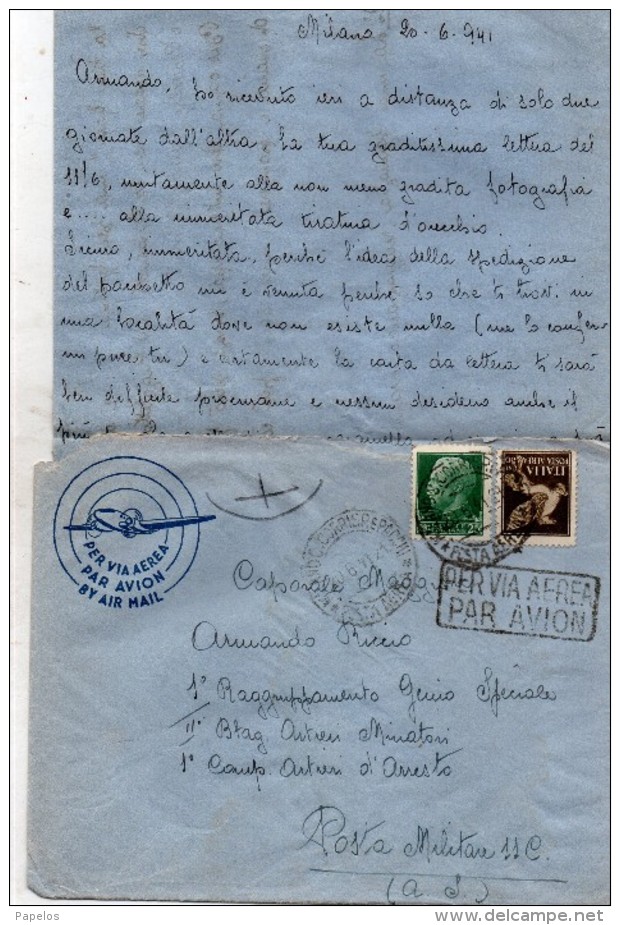 Milano 20-6-941
Armando, ho ricevuto ieri a distanza di solo due
giornate dall'altra la tua graditissima lettera del
11/6, unitamente alla non meno gradita fotografia
e.... alla immeritata tiratina d'orecchio.
Sicuro, immeritata, perchè l'idea della spedizione
del pacchetto mi è venuta perchè so che ti trovi in
una località dove non esiste nulla (me lo confer-
mi pure tu) e certamente la carta da lettera ti sarà
ben difficile procurarne e nessun desiderio anche il
PER VIA AEREA
PAR AVION
BY AIR MAIL
ITALIA
POSTA AEREA
PER VIA AEREA
PAR AVION
Caporale Magg
Armando Riccio
1° Raggruppamento Genio Speciale
II° Btag. Artieri Minatori
1° Comp. Artieri d'Arresto
Posta Militare 11 C.
(A. S.)
Papelos
www.delcampe.net